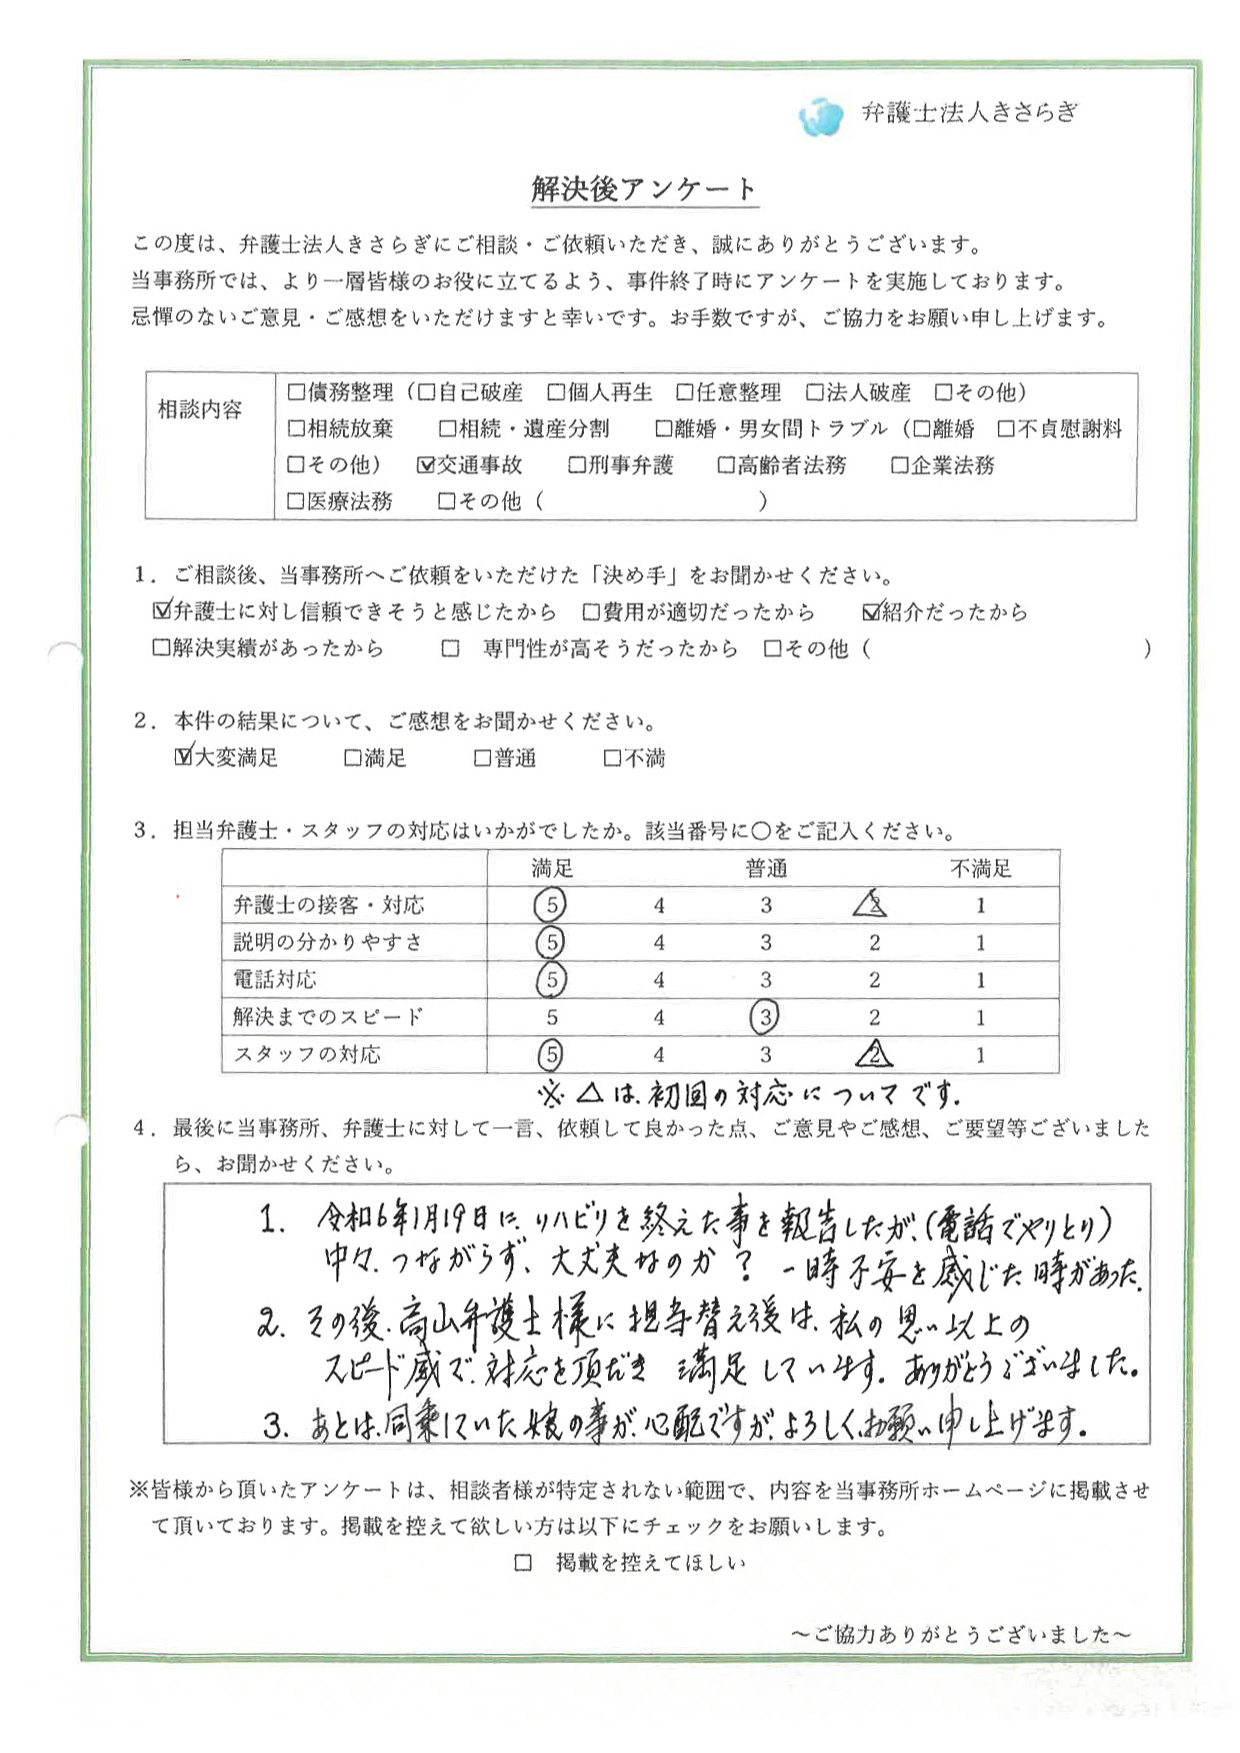 弁護士法人きさらぎ
解決後アンケート
この度は、弁護士法人きさらぎにご相談・ご依頼いただき、誠にありがとうございます。
当事務所では、より一層皆様のお役に立てるよう、事件終了時にアンケートを実施しております。
忌憚のないご意見・ご感想をいただけますと幸いです。お手数ですが、ご協力をお願い申し上げます。
相談内容
□債務整理（□自己破産　□個人再生　□任意整理　□法人破産　□その他）
□相続放棄　　□相続・遺産分割　　□離婚・男女間トラブル（□離婚　□不貞慰謝料
□その他）　☑交通事故　　□刑事弁護　　□高齢者法務　　□企業法務
□医療法務　　□その他（　　　　　　　　　　）
1．ご相談後、当事務所へご依頼をいただけた「決め手」をお聞かせください。
☑弁護士に対し信頼できそうと感じたから　□費用が適切だったから　　☑紹介だったから
□解決実績があったから　　□　専門性が高そうだったから　□その他（　　　　　　　　　　　　　）
2．本件の結果について、ご感想をお聞かせください。
☑大変満足　　　□満足　　　□普通　　　□不満
3．担当弁護士・スタッフの対応はいかがでしたか。該当番号に〇をご記入ください。
満足　普通　不満足
弁護士の接客・対応　⑤　4　3　2　1
説明の分かりやすさ　⑤　4　3　2　1
電話対応　⑤　4　3　2　1
解決までのスピード　5　4　③　2　1
スタッフの対応　⑤　4　3　2　1
※△は、初回の対応についてです。
4．最後に当事務所、弁護士に対して一言、依頼して良かった点、ご意見やご感想、ご要望等ございました
ら、お聞かせください。
1. 令和6年1月19日に、リハビリを終えた事を報告したが、（電話でやりとり）
中々、つながらず、大丈夫なのか？ 一時不安を感じた時があった。
2. その後、高山弁護士様に担当替え後は、私の思い以上の
スピード感で、対応を頂だき 満足しています。ありがとうございました。
3. あとは、同乗していた娘の事が、心配ですが、よろしく、お願い申し上げます。
※皆様から頂いたアンケートは、相談者様が特定されない範囲で、内容を当事務所ホームページに掲載させ
て頂いております。掲載を控えて欲しい方は以下にチェックをお願いします。
□　掲載を控えてほしい
～ご協力ありがとうございました～